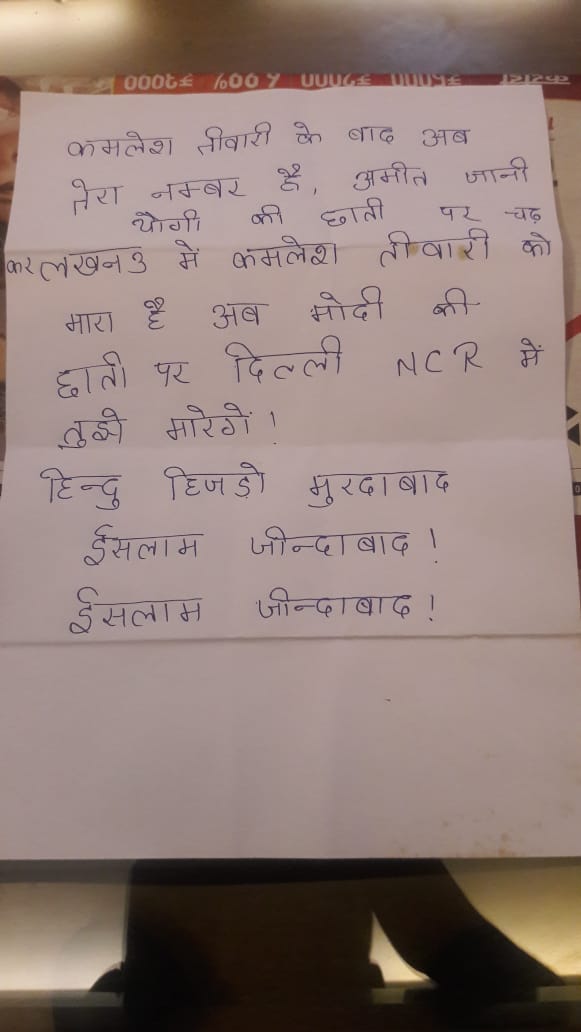 कमलेश तीवारी के बाद अब
तेरा नम्बर है, अमीत जानी
योगी की छाती पर चढ़
कर लखनउ में कमलेश तीवारी को
मारा है अब मोदी की
छाती पर दिल्ली NCR में
तुझे मारेगें!
हिन्दु हिजड़ो मुरदाबाद
ईसलाम जीन्दाबाद!
ईसलाम जीन्दाबाद!